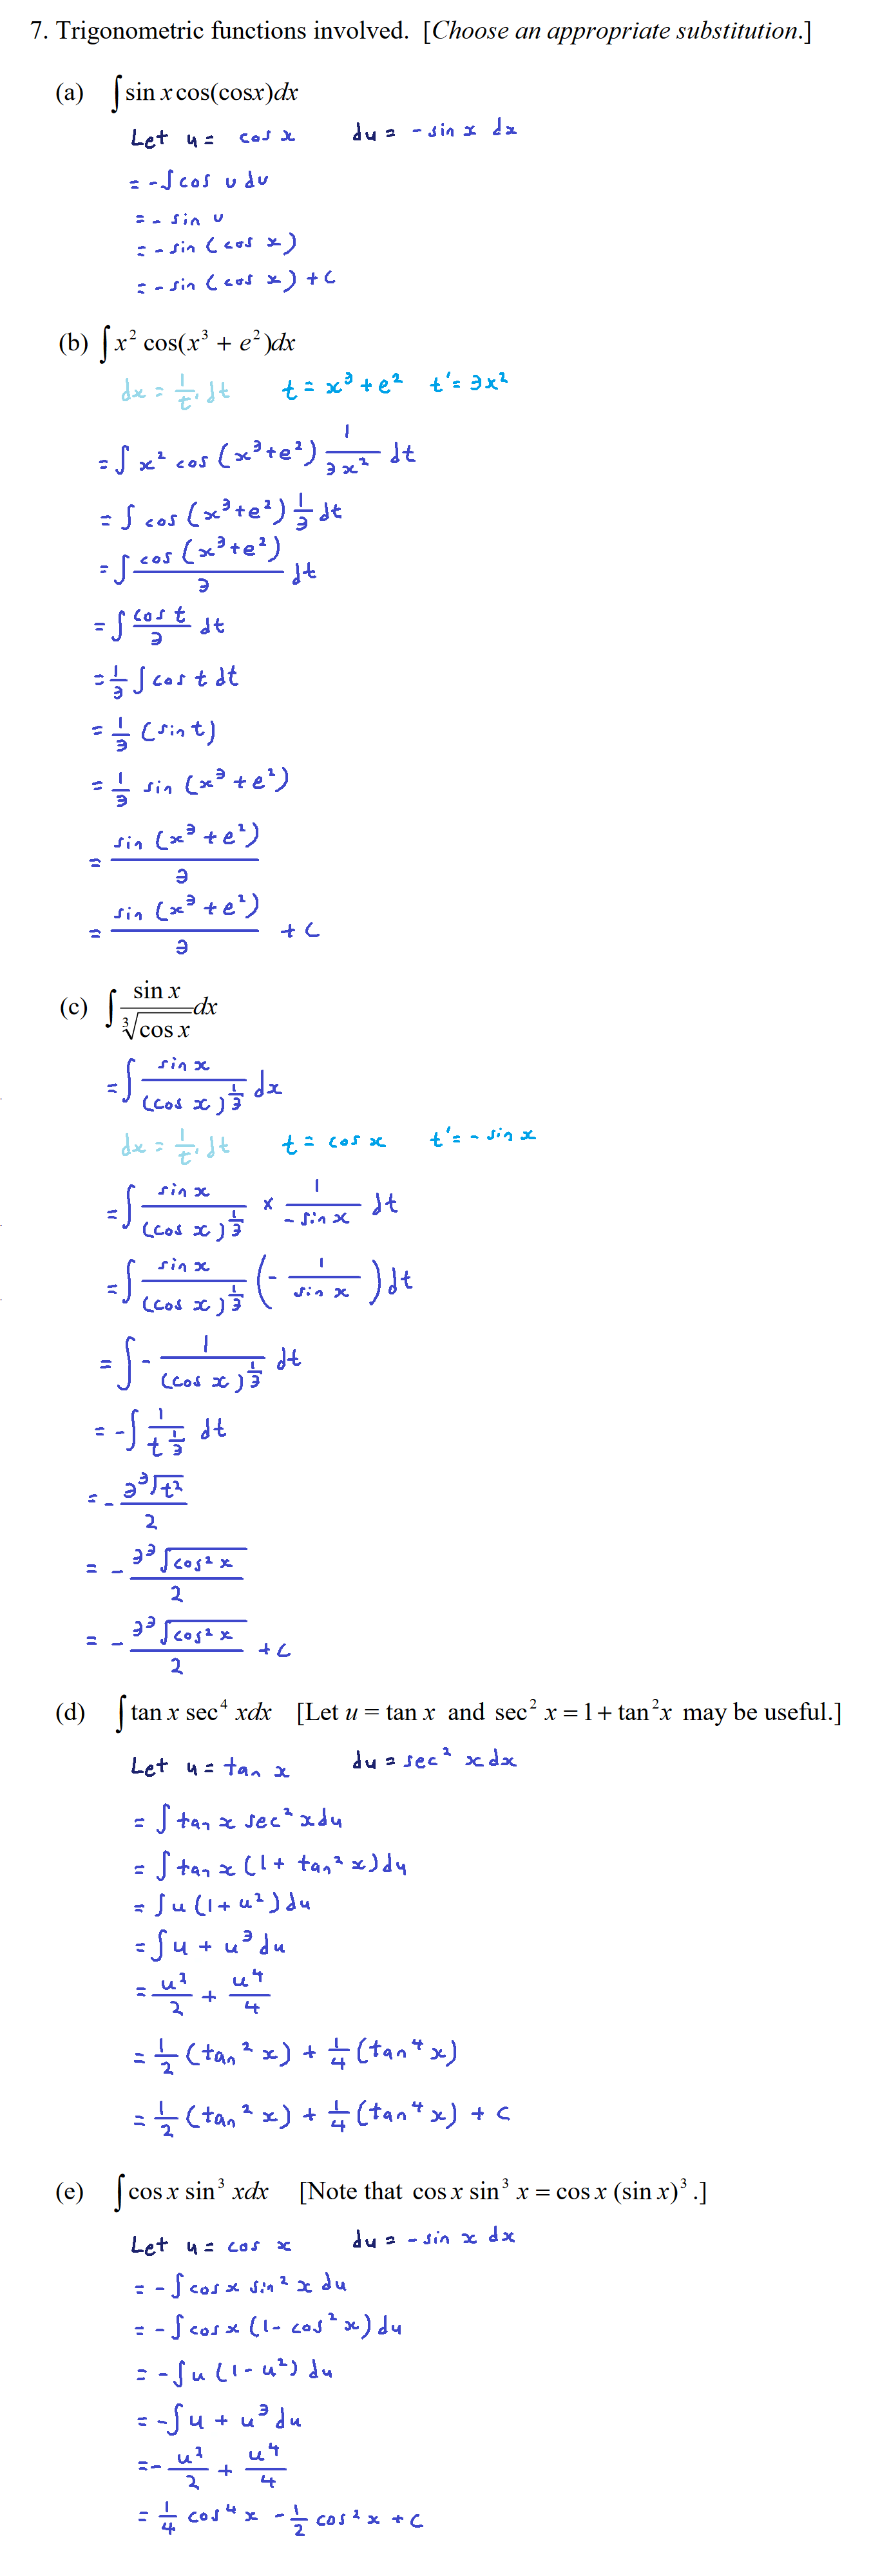 7. Trigonometric functions involved. [Choose an appropriate substitution.]
(a) ∫ sin x cos(cosx)dx
Let u = cos x du = - sin x dx
= -∫ cos u du
= - sin u
= - sin (cos x)
= - sin (cos x) + c
(b) ∫ x² cos(x³ + e²)dx
dx = 1/t' dt t = x³ + e² t' = 3x²
= ∫ x² cos (x³+e²) 1/(3x²) dt
= ∫ cos (x³+e²) 1/3 dt
= ∫ cos (x³+e²)/3 dt
= ∫ cos t/3 dt
= 1/3 ∫ cos t dt
= 1/3 (sin t)
= 1/3 sin (x³ + e²)
= sin (x³ + e²)/3
= sin (x³ + e²)/3 + c
(c) ∫ sin x/∛(cos x) dx
= ∫ sin x/(cos x)^(1/3) dx
dx = 1/t' dt t = cos x t' = - sin x
= ∫ sin x/(cos x)^(1/3) × 1/(- sin x) dt
= ∫ sin x/(cos x)^(1/3) (- 1/sin x) dt
= ∫ - 1/(cos x)^(1/3) dt
= - ∫ 1/t^(1/3) dt
= - 3∛(t²)/2
= - 3∛(cos² x)/2
= - 3∛(cos² x)/2 + c
(d) ∫ tan x sec⁴ xdx [Let u = tan x and sec² x = 1 + tan²x may be useful.]
Let u = tan x du = sec² x dx
= ∫ tan x sec² x du
= ∫ tan x (1 + tan² x) du
= ∫ u (1 + u²) du
= ∫ u + u³ du
= u²/2 + u⁴/4
= 1/2 (tan² x) + 1/4 (tan⁴ x)
= 1/2 (tan² x) + 1/4 (tan⁴ x) + c
(e) ∫ cos x sin³ xdx [Note that cos x sin³ x = cos x (sin x)³ .]
Let u = cos x du = - sin x dx
= - ∫ cos x sin² x du
= - ∫ cos x (1 - cos² x) du
= - ∫ u (1 - u²) du
= - ∫ u + u³ du
= - u²/2 + u⁴/4
= 1/4 cos⁴ x - 1/2 cos² x + c